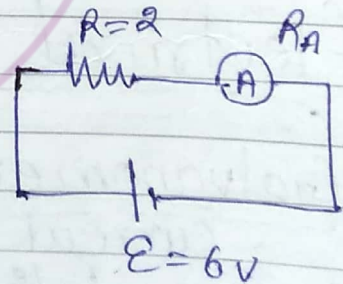 R=2 R_A
A
Ɛ=6v